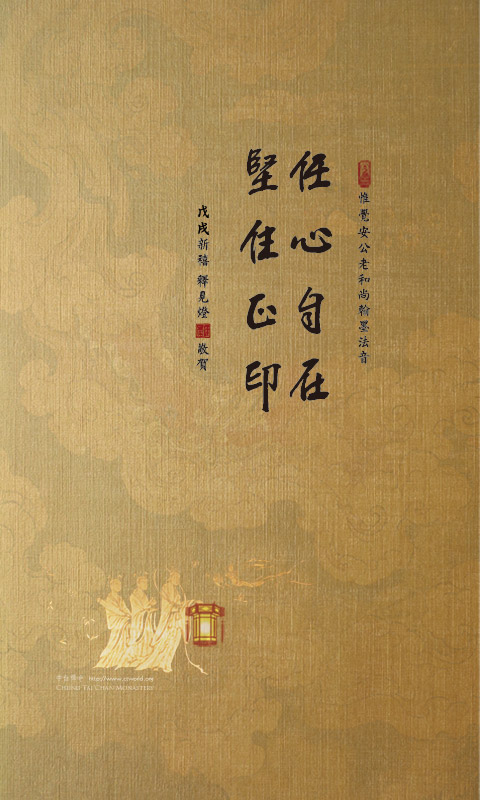 惟覺安公老和尚翰墨法音
任心自在
堅住正印
戊戌新禧 釋見燈 敬賀
中台禪寺 http://www.ctworld.org
CHUNG TAI CHAN MONASTERY